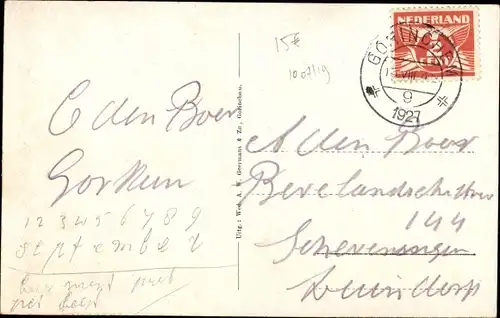 15€
10 0719
NEDERLAND
GORINCHEM
VIII
9
1927
C den Boer
Gorkum
1 2 3 4 5 6 7 8 9
s e p t e m b e r
A den Boer
Bevelandschestraat
144
Scheveningen
Duindorp
Uitg.: Wed. A. W. Geermans & Zn., Gorinchem.